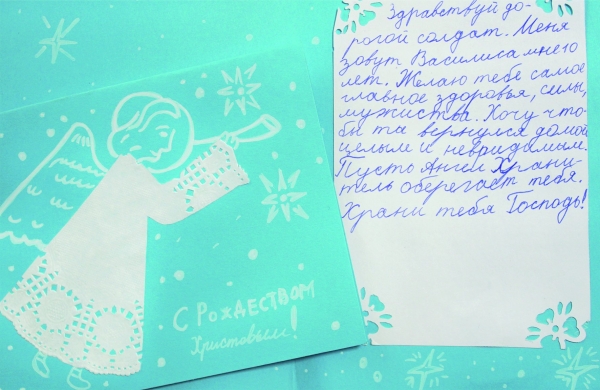 С РОЖДЕСТВОМ
Христовым!
Здравствуй до-
рогой солдат. Меня
зовут Василиса мне 10
лет. Желаю тебе самое
главное здоровья, силы,
мужиства. Хочу что-
би та вернулся домой
целым и невридимым.
Пусто Ангел Храни-
тель оберегает тебя.
Храни тебя Господь!